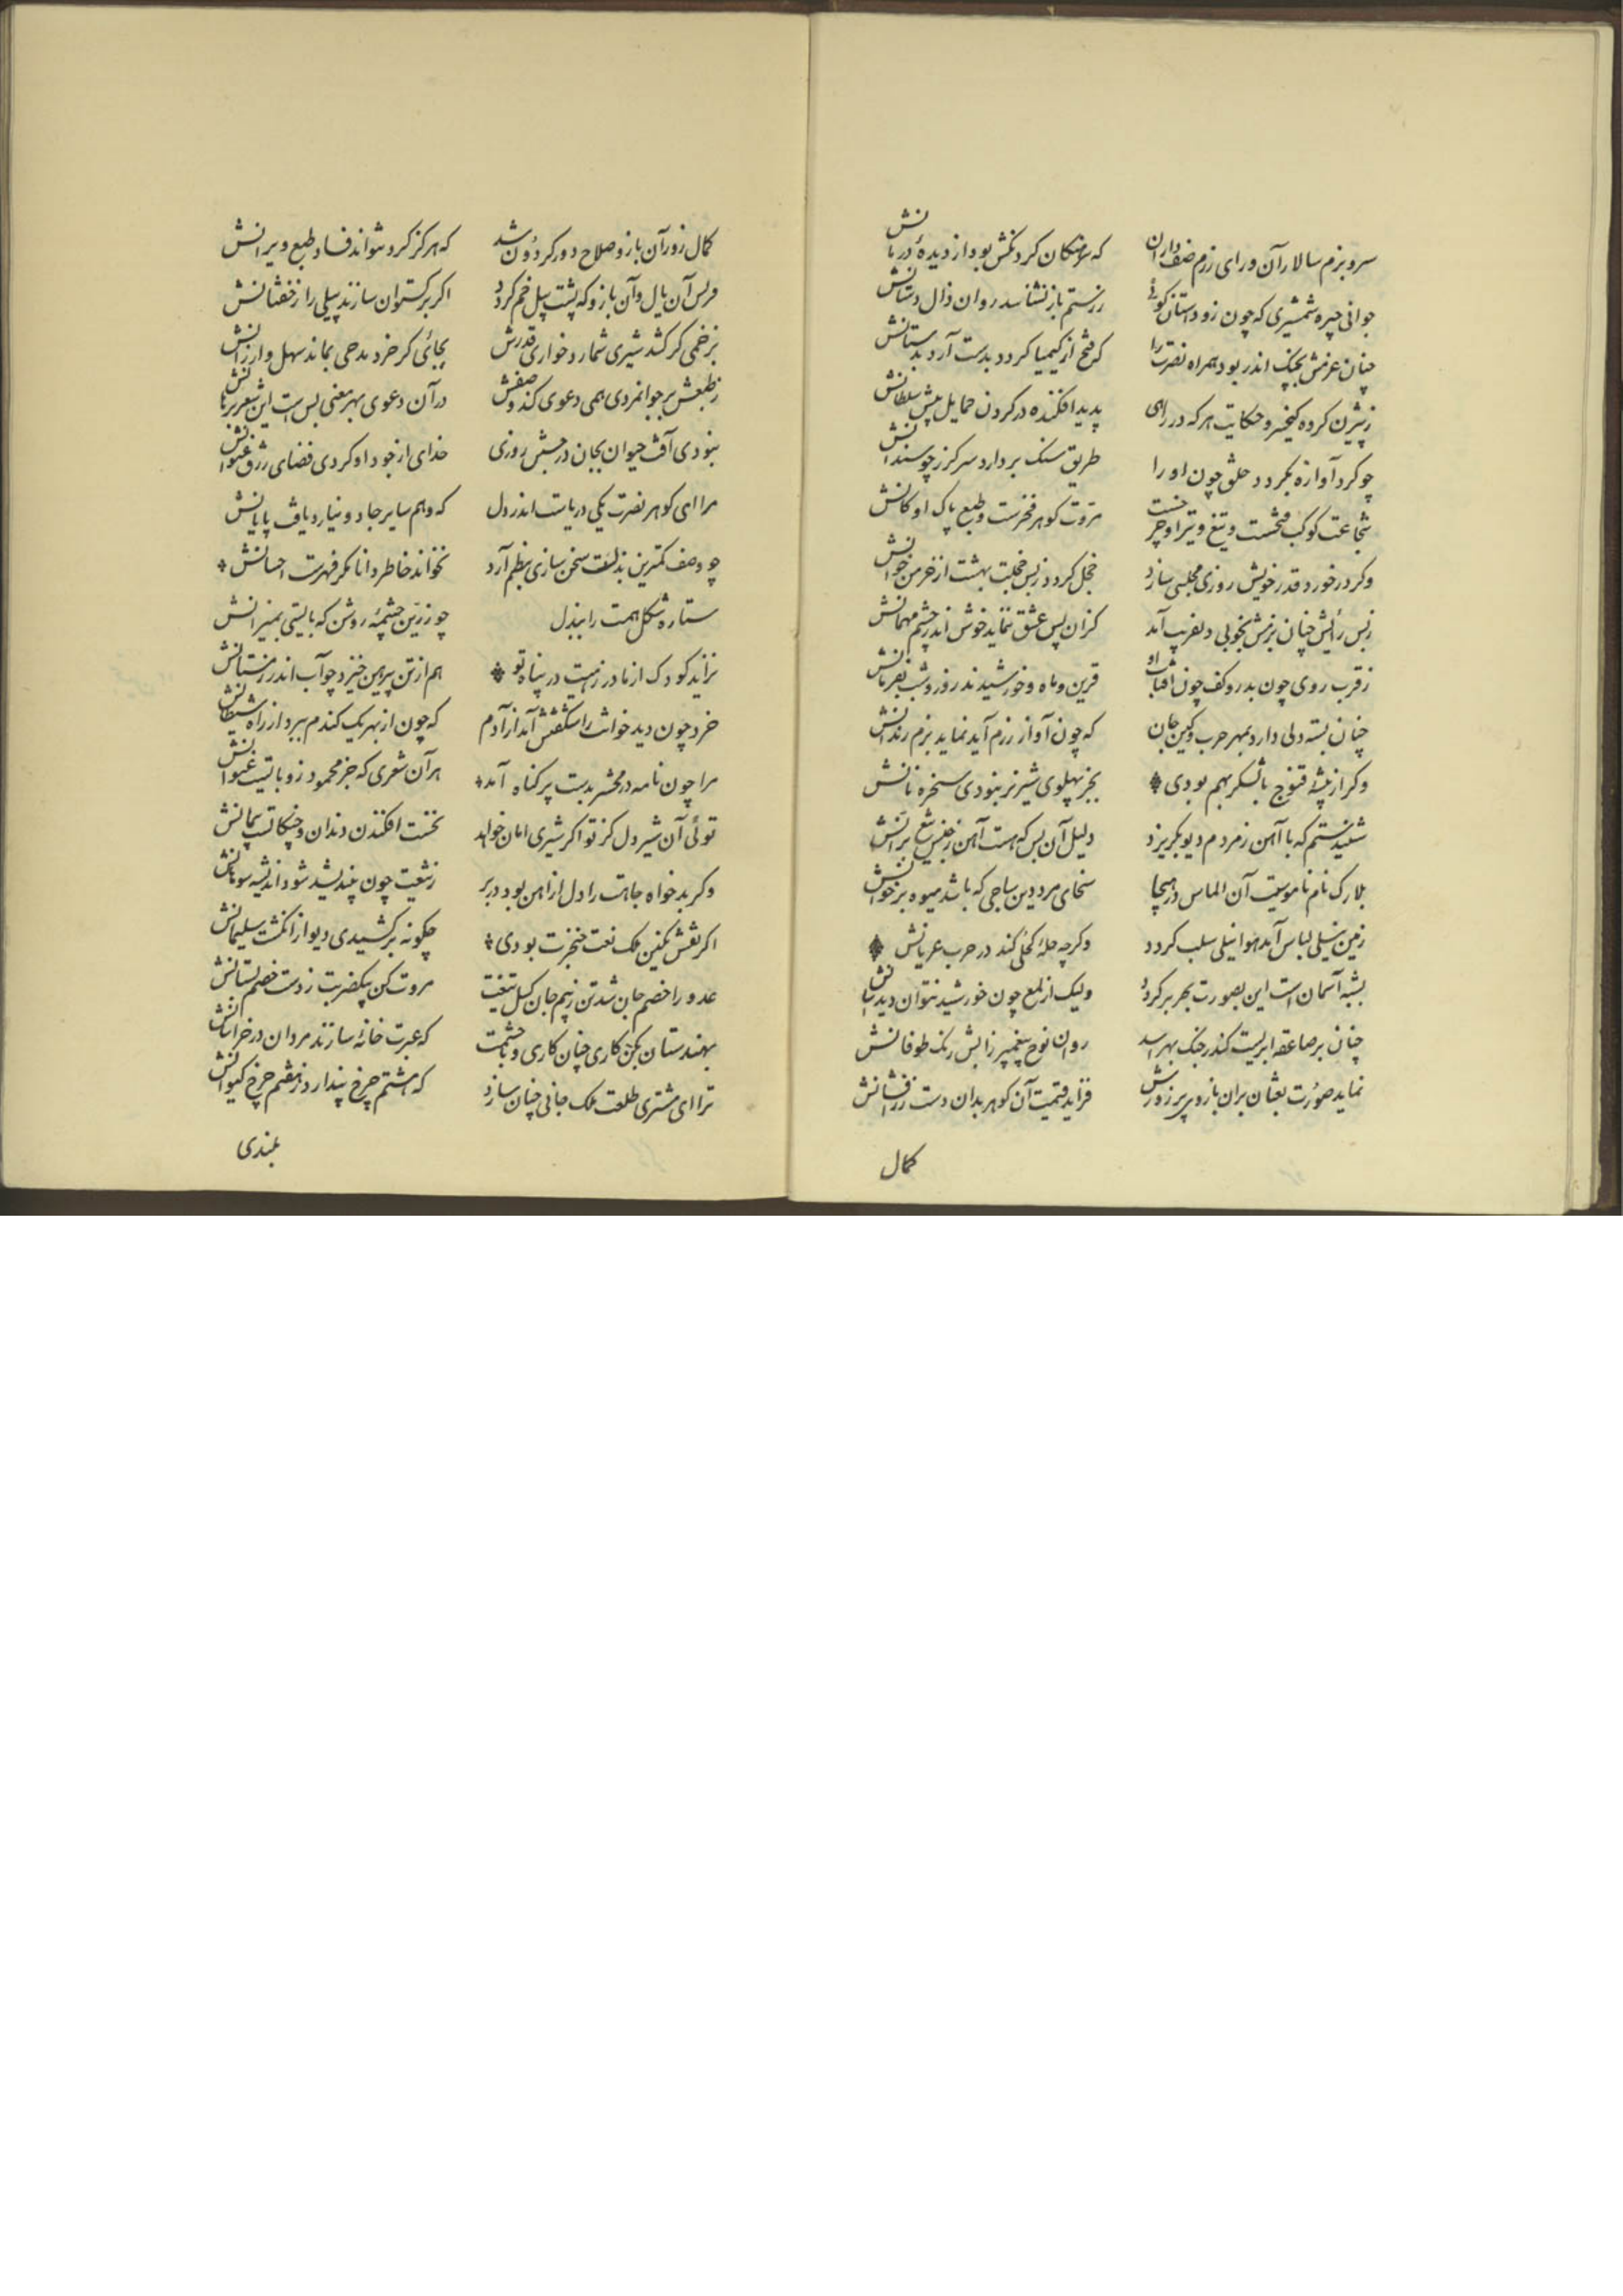 سر و بزم سالاران ورای رزم صف داران که سرهنگان کردنکش بود از دیدهٔ دربانش
جوانی چیره شمشیری که چون زو داستان گوئی ز رستم باز نشناسد روان ذال دستانش
چنان عزمش بجنک اندر بود همراه نصرت را که فتح از کیمیا کردد بدست آرد بدستانش
ز بیژن کرده کیخسرو حکایت هرکه در رای پدید افکنده در کردن حمایل پیش سلطانش
چو کرد آوازه بکردد حلق چون او را طریق سنک بردارد سرکرز چو سندانش
شجاعت کوکب فحست و تیغ و تیر او چرخست مروت کوهر فخرست و طبع پاک او کانش
وکر در خورد قدر خویش روزی مجلسی سازد خجل کردد ز بس خجلت بهشت از خرمن خوانش
ز بس رایش چنان بزمش بخوبی دلفریب آمد کزان پس عشق ننماید خوش اندر چشم مهمانش
ز قرب روی چون بدر و کف چون آفتاب او قرین و ماه و خورشیدند روز و شب بفرمانش
چنان بسته دلی دارد بمهر حرب و کین جان که چون آواز رزم آید نماید بزم زندانش
وکر از بیشهٔ قنوج با لشکر بهم بودی بجز پهلوی شیر نر نبودی سخره نانش
شنیدستم که با آهن ز مردم دیو بکریزد دلیل آن بس که هست آهن ز جنس تیغ برانش
بلارک نام ناموسیت آن الماس در هیجا سخای مرد دین ساجی که باشد میوه بر خوانش
زمین نیلی لباس آید هوا نیلی سلب کردد وکرچه حلهٔ کحلی کند در حرب عریانش
بشبه آسمان است این بصورت بحر بر کردد ولیک از لمع چون خورشید نتوان دید تابانش
چنان بر صاعقه ابریست کندر جنک بهراسد روان نوح پیغمبر ز آتش رنک طوفانش
نماید صورت بعثان بران بازوی پر زورش فزاید قیمت آن کوهر بدان دست زرافشانش
کمال
کمال زور آن بازو صلاح دور کردون شد که هرکز کرد نتواند فساد طبع ویرانش
فرس آن یال و آن بازو که پشت پیل خم کردد اکر برکستوان سازند پیلی را ز خفتانش
بزخمی کر کشد شیری شمارد خواری قدرش بجائی کر خرد مدحی بماند سهل و ارزانش
ز طبعش بر جوانمردی همی دعوی کند وصفش در آن دعوی بهر معنی بس است این شعر برهانش
نبودی آفت حیوان بجان در جستن روزی خدای از جود او کردی قضای رزق حیوانش
مرا ای کوهر نصرت یکی دریاست اندر دل که وهم سایر جادو نیارد یافت پایانش
چو وصف کمترین بذلت سخن سازی بنظم آرد نخواند خاطر دانا مکر فهرست احسانش
ستاره شکل همت را ببذل چو زرین چشمهٔ روشن که بایستی بمیزانش
نزاید کودک از مادر زمینت در پناه تو هم از تن پیرهن خیزد چو آب اندر زمستانش
خرد چون دید خوانت را شکفتش آید از آدم که چون از بهر یک کندم ببرد از راه شیطانش
مرا چون نامه در محشر بدست پر کناه آمد هر آن شعری که جز محمود زو بابیست عنوانش
توئی آن شیر دل کز تو اکر شیری امان خواهد نخست افکندن دندان و چنکالست پیمانش
وکر بدخواه جاهت را دل از آهن بود در بر ز تیغت چون بیندیشد شود اندیشه سوهانش
اکر نقش نکین ملک نعت خنجرت بودی چکونه برکشیدی دیو از انکشت سلیمانش
عدو را خصم جان شد تن ز بیم جان کسل تیغت مروت کن بیکضربت ز دست خصم بستانش
بهندستان بکن کاری چنان کاری و با حشمت که عبرت خانهٔ سازند مردان در خراسانش
ترا ای مشتری طلعت ملک جانی چنان سازد که هشتم چرخ پندارد ز هفتم چرخ کیوانش
بلندی